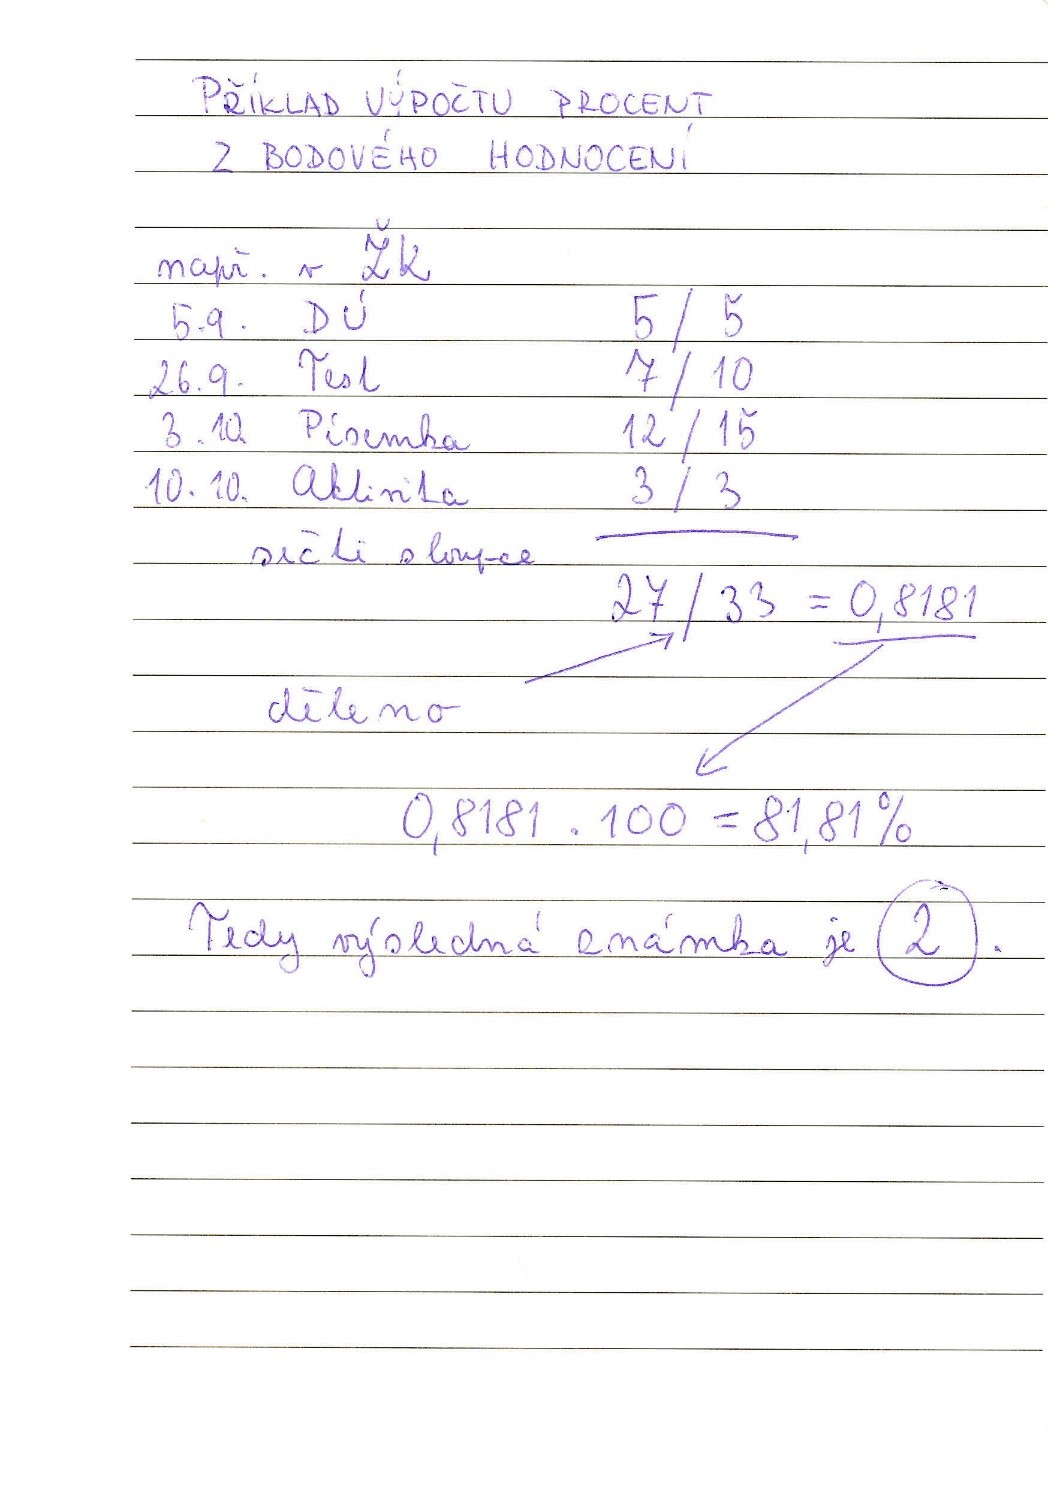 PŘÍKLAD VÝPOČTU PROCENT
Z BODOVÉHO HODNOCENÍ
např. v ŽK
5.9. DÚ 5 / 5
26.9. Test 7 / 10
3.10. Písemka 12 / 15
10.10. Aktivita 3 / 3
sečti sloupce
27 / 33 = 0,8181
děleno
0,8181 . 100 = 81,81%
Tedy výsledná známka je 2 .